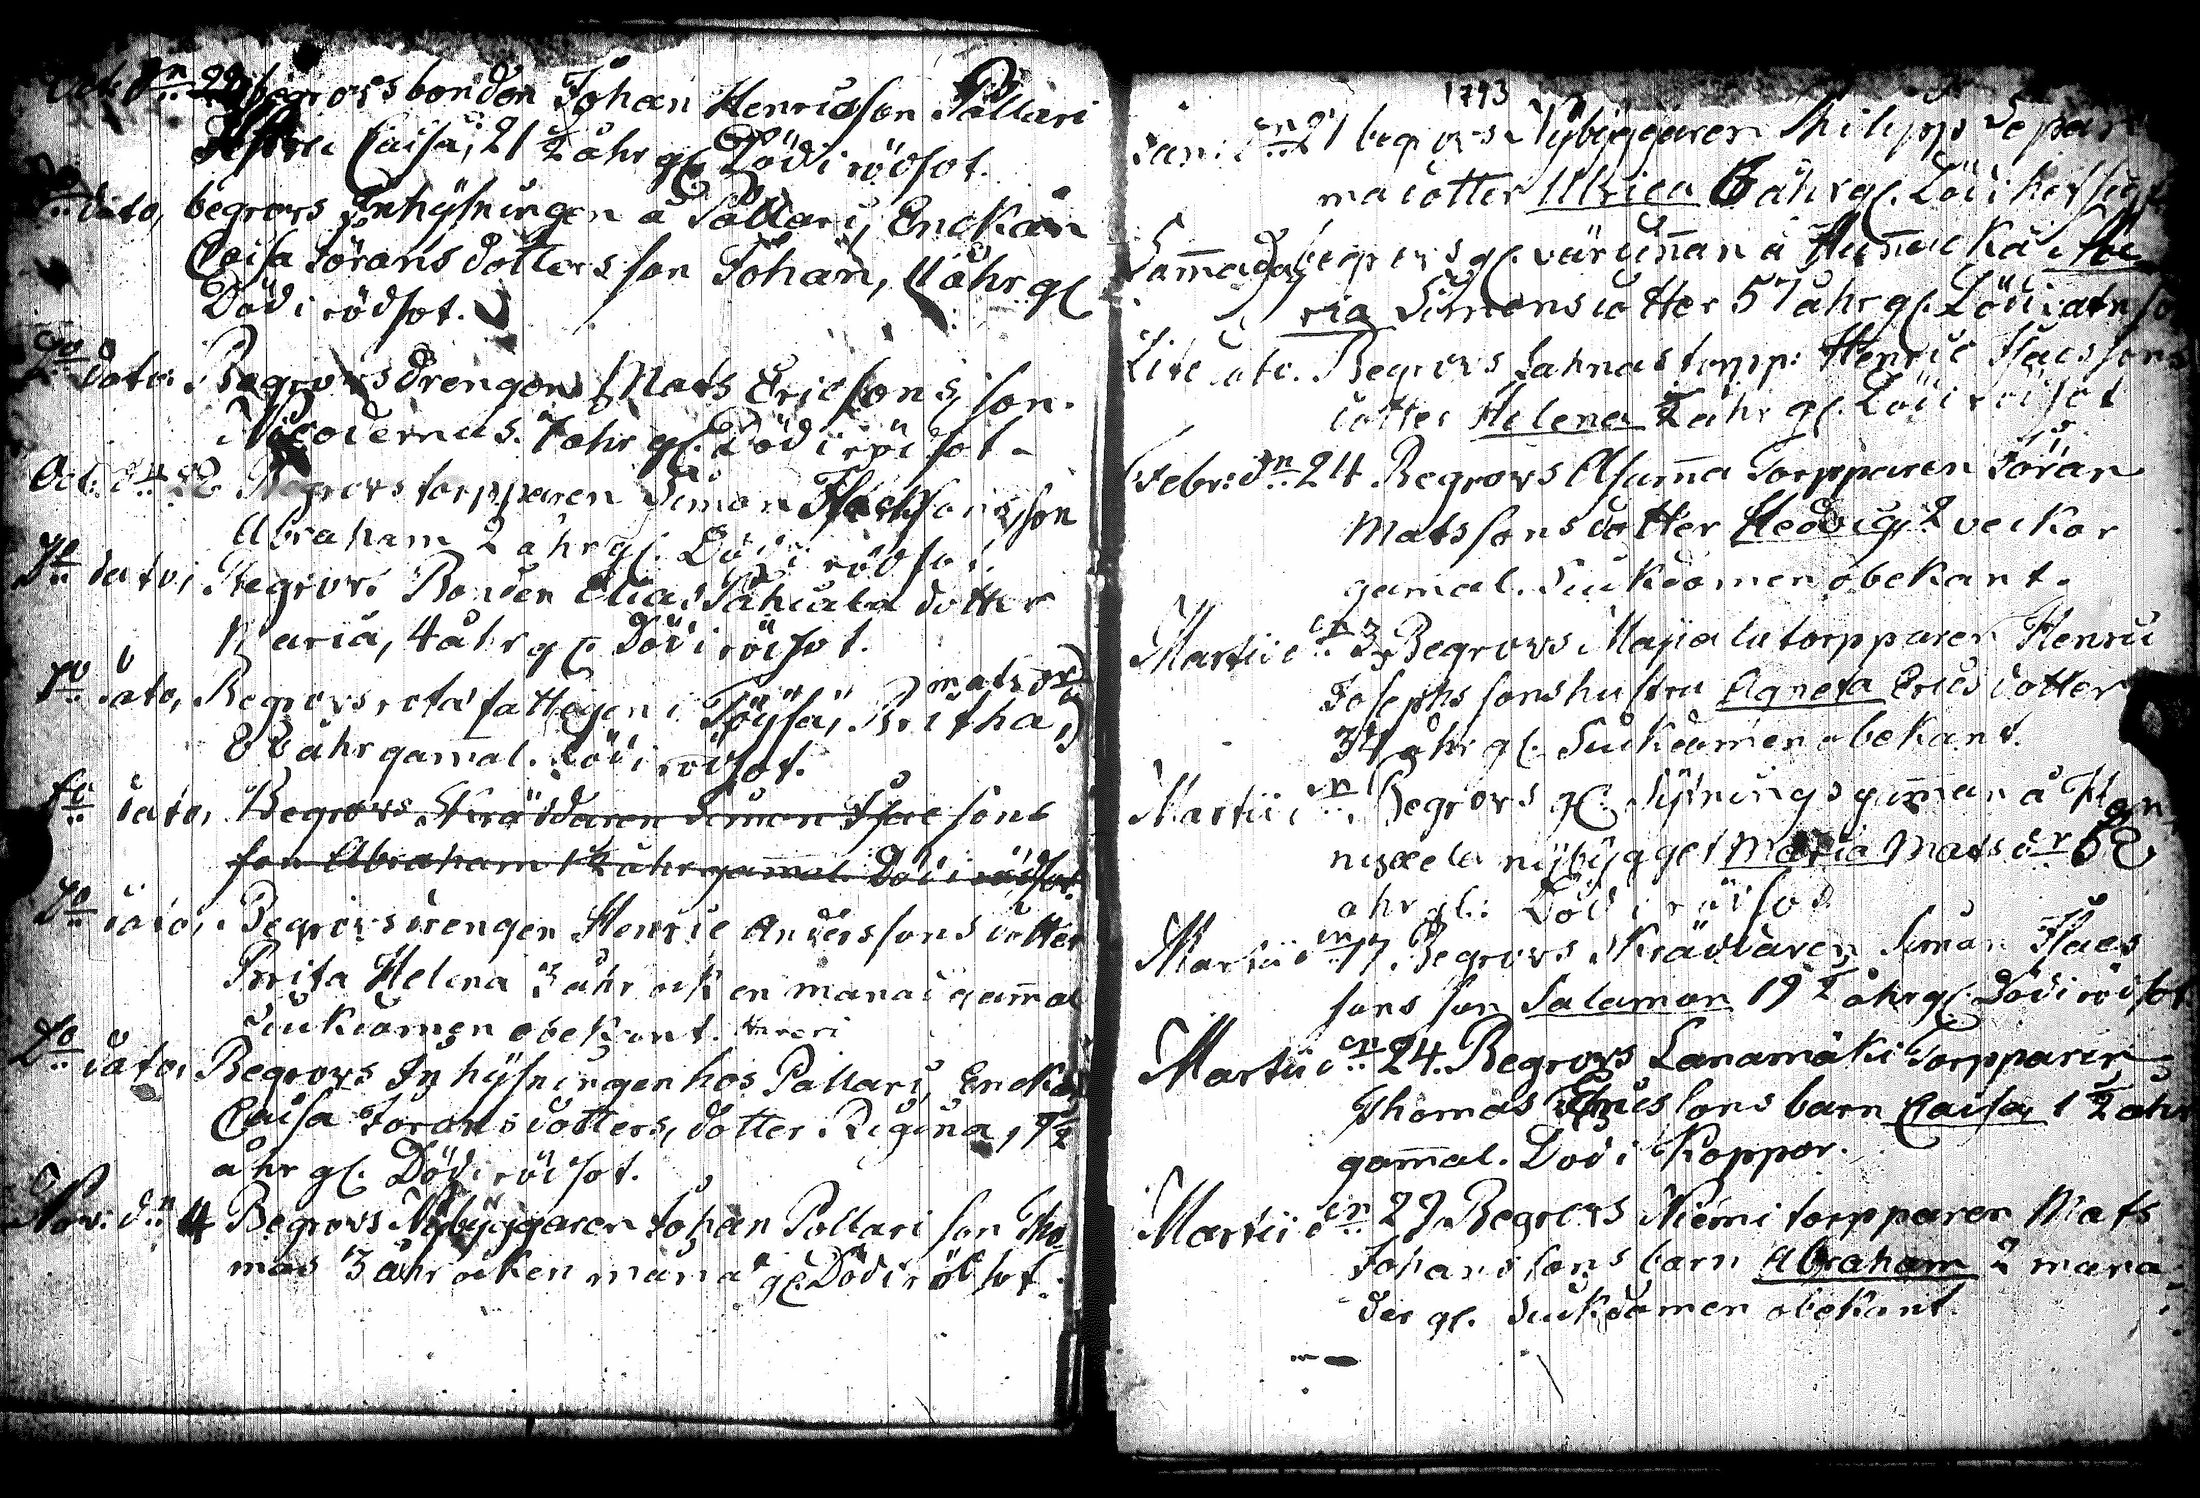 Oct. dn 22 begrovs bonden Johan Henricsson Pållari
Hustru Caisa, 21 1/2 åhr gl. Död i rödsot.
Do dato, begrovs Inhysningen å Pållari, Enckan
Caisa Jöransdotters son Johan, 11 åhr gl
Död i rödsot.
Do dato: Begrovs drengen Mats Ericsons, son.
Nicodemus. 7 åhr gl. Död i rödsot.
Oct. dn Begrovs torpparen Simon Isacksons, son
Abraham 2 åhr gl. Död i rödsot.
Do dato, Begrovs Bonden Elias dotter
Maria, 4 åhr gl. Död i rödsot.
mats dr
Do dato, Begrovs rota fattigen i Töysä, Britha,
åhr gamal. Död i rödsot.
Do dato, Begrovs Skräddaren Simon Isacsons
son Abraham 1 1/2 åhr gam̄al. Död i rödsot.
Do dato, Begrovs drengen Henric Anderssons dotter
Brita Helena 3 åhr ock en månad gam̄al
Siukdomen obekant.
Do dato, Begrovs Inhysningen hos Pallari, Enckan
Caisa Joransdotters, dotter Regina, 7 1/2
åhr gl. Död i rödsot.
Nov: dn 4 Begrovs Nybyggaren Johan Pollari son Tho-
mas 3 åhr ock en månad gl. Död i rödsot.
1793
Jan: dn 21 begrovs Nybyggaren Philipp
dotter Ulrica 6 åhr gl. Död i
Sam̄a dag begrovs gl. värdin̄an å Ma-
ria Simonsdotter 57 åhr gl. Död i
dato. Begrovs torpp: Henric Isacssons
dotter Helena 1/2 åhr gl. Död i rödsot
Febr: dn 24 Begrovs Torpparen Jöran
Matssons dotter Hedvig 2 veckor
gamal. Siukdomen obekant.
Martii dn 3 Begrovs torpparen Henric
Josephssons hustru Agneta Ericsdotter
34 åhr gl. Siukdomen obekant.
Martii dn Begrovs gl. Sytningsgum̄an å
nybygget Maria Mats dr
åhr gl: Död i rödsot
Martii dn 17 Begrovs Skräddaren Simon Isacs
sons son Salamon 19 1/2 åhr gl. Död i rödsot
Martii dn 24. Begrovs Lanamäki Torpparen
Thomas Ericssons barn Caisa, 1 1/2 åhr
gam̄al. Död i Koppor.
Martii dn 29. Begrovs Niemi torpparen Mats
Johanssons barn Abraham 2 måna-
der gl. Siukdomen obekant.